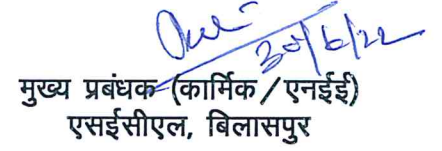 30/6/22
मुख्य प्रबंधक (कार्मिक/एनईई)
एसईसीएल, बिलासपुर